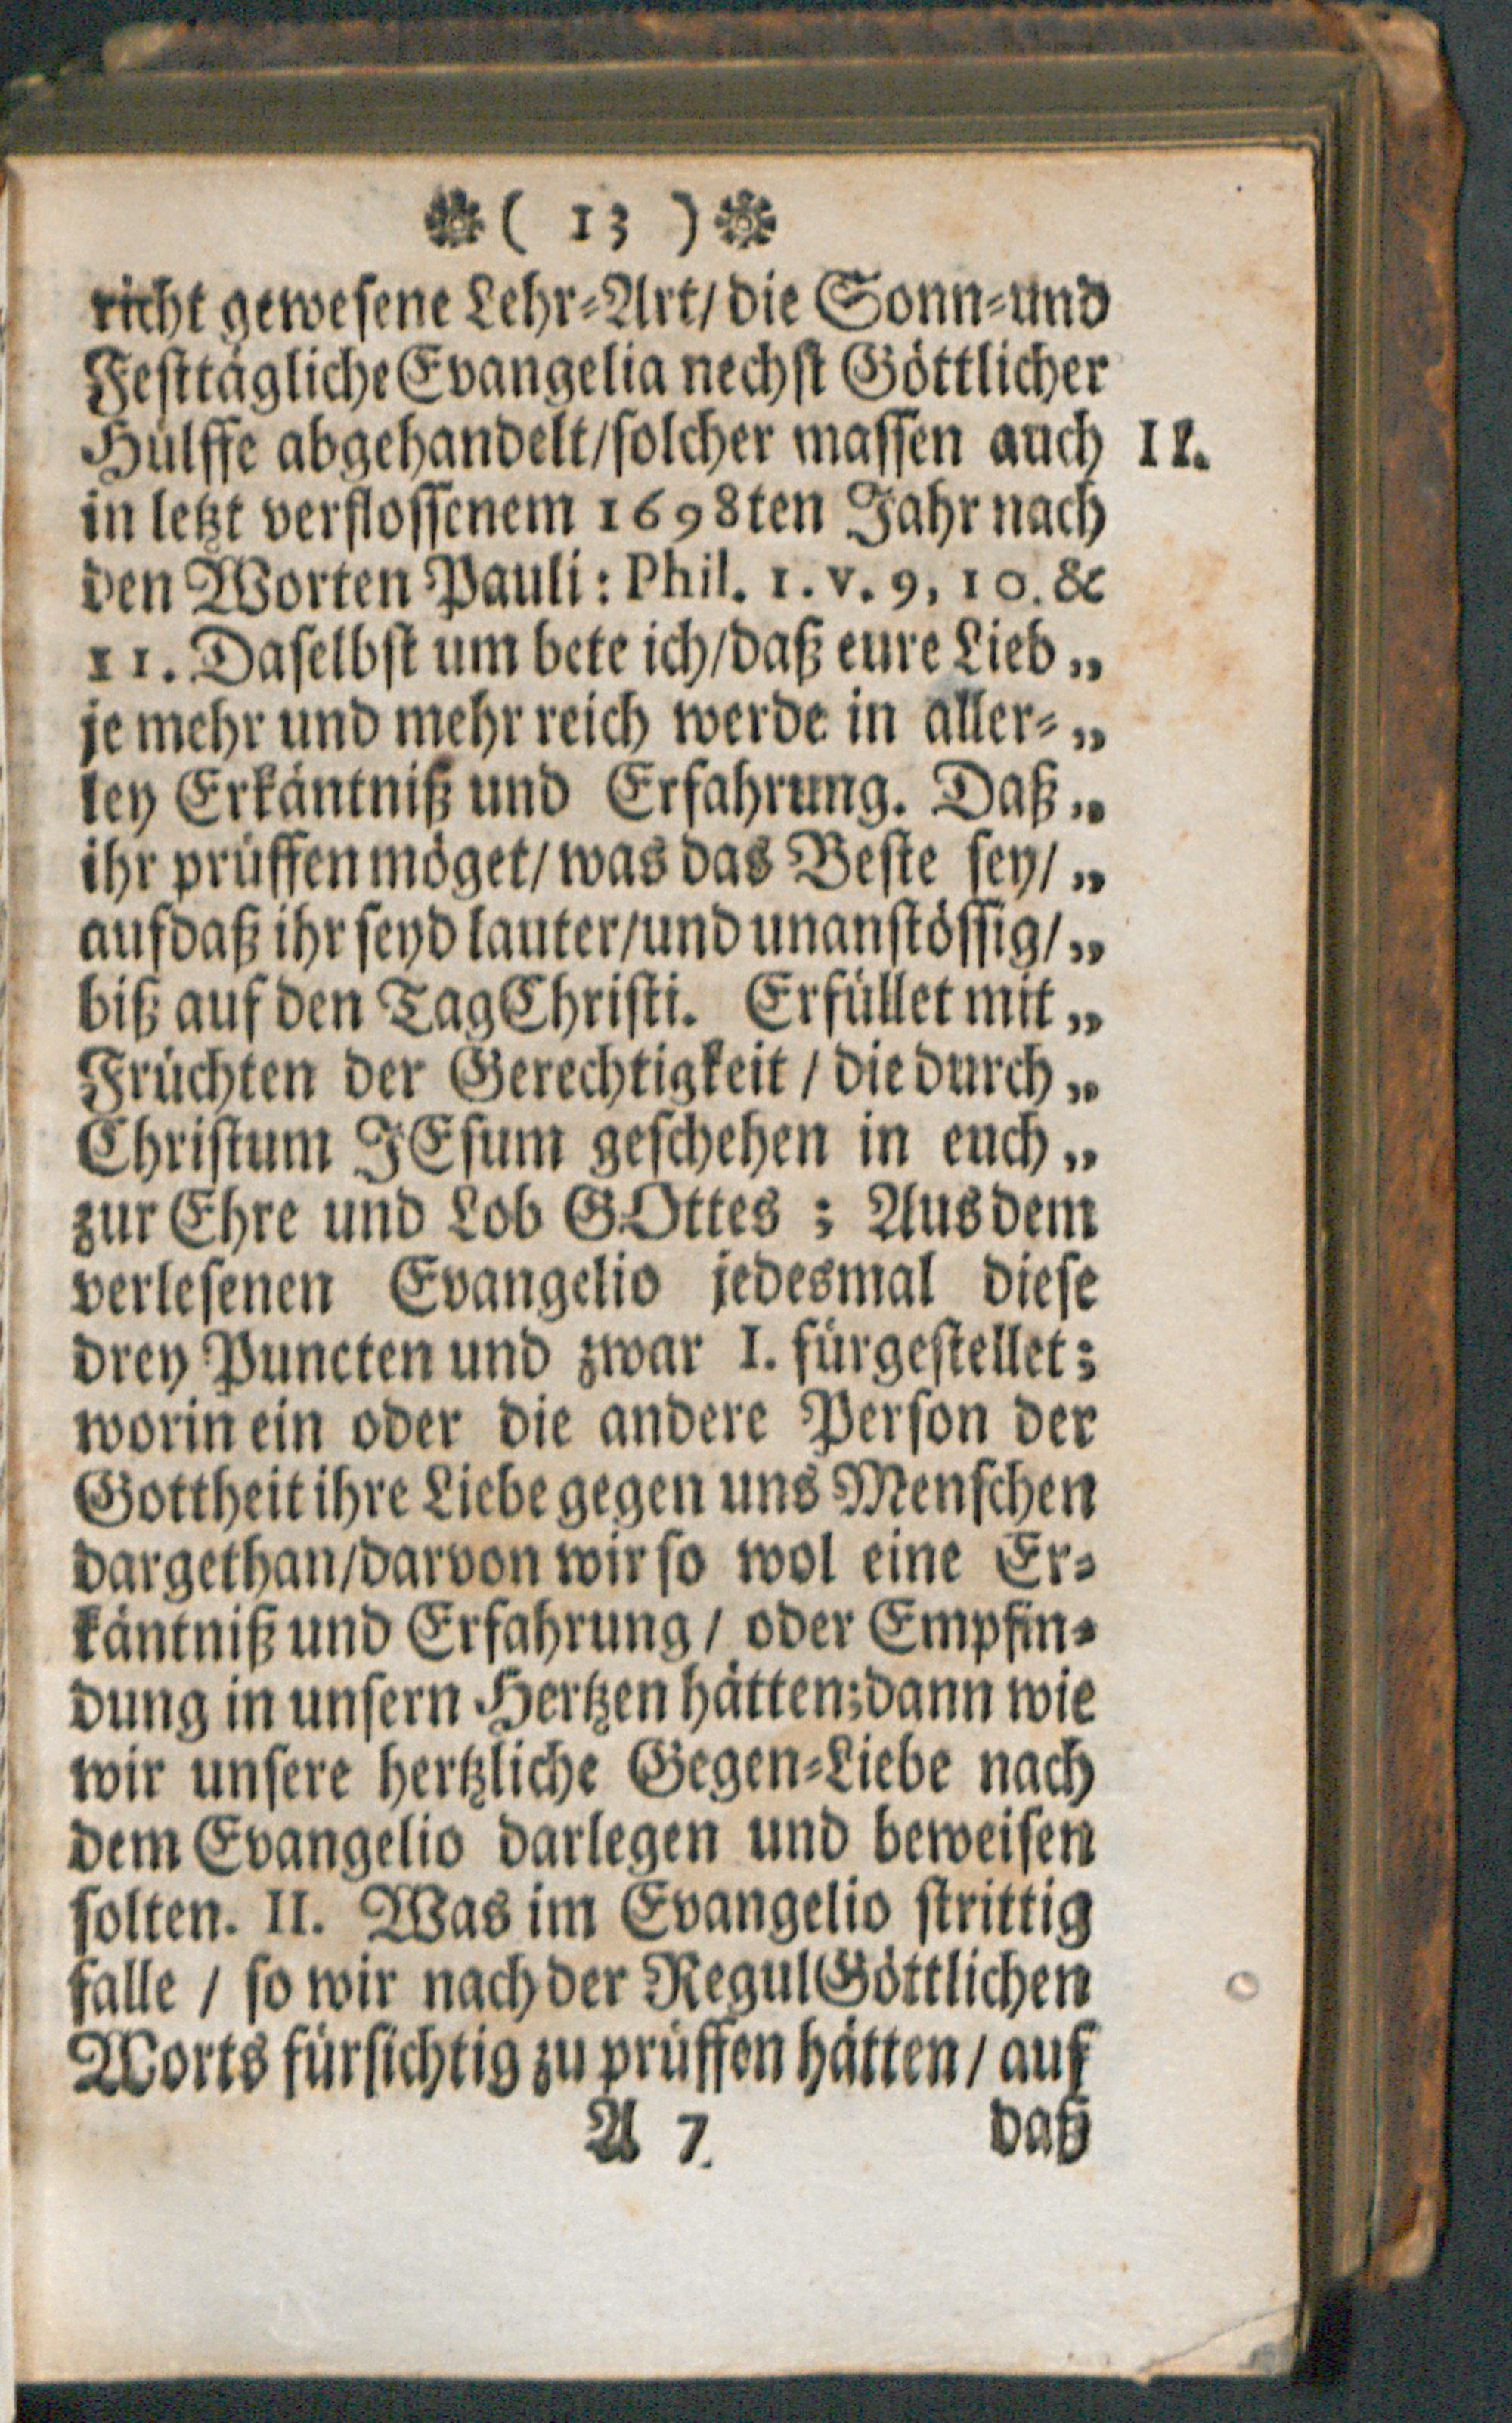 ( 13 )
richt gewesene Lehr-Art/ die Sonn-und
Festtägliche Evangelia nechst Göttlicher
Hülffe abgehandelt/ solcher massen auch II.
in letzt verflossenem 1698ten Jahr nach
den Worten Pauli: Phil. 1. v. 9, 10. &
11. Daselbst um bete ich/ daß eure Lieb „
je mehr und mehr reich werde in aller- „
ley Erkäntniß und Erfahrung. Daß „
ihr prüffen möget/ was das Beste sey/ „
aufdaß ihr seyd lauter/ und unanstössig/ „
biß auf den Tag Christi. Erfüllet mit „
Früchten der Gerechtigkeit / die durch „
Christum JEsum geschehen in euch „
zur Ehre und Lob GOttes ; Aus dem
verlesenen Evangelio jedesmal diese
drey Puncten und zwar I. fürgestellet;
worin ein oder die andere Person der
Gottheit ihre Liebe gegen uns Menschen
dargethan/ darvon wir so wol eine Er-
käntniß und Erfahrung / oder Empfin-
dung in unsern Hertzen hätten; dann wie
wir unsere hertzliche Gegen-Liebe nach
dem Evangelio darlegen und beweisen
solten. II. Was im Evangelio strittig
falle / so wir nach der Regul Göttlichen
Worts fürsichtig zu prüffen hätten / auf
A 7. daß